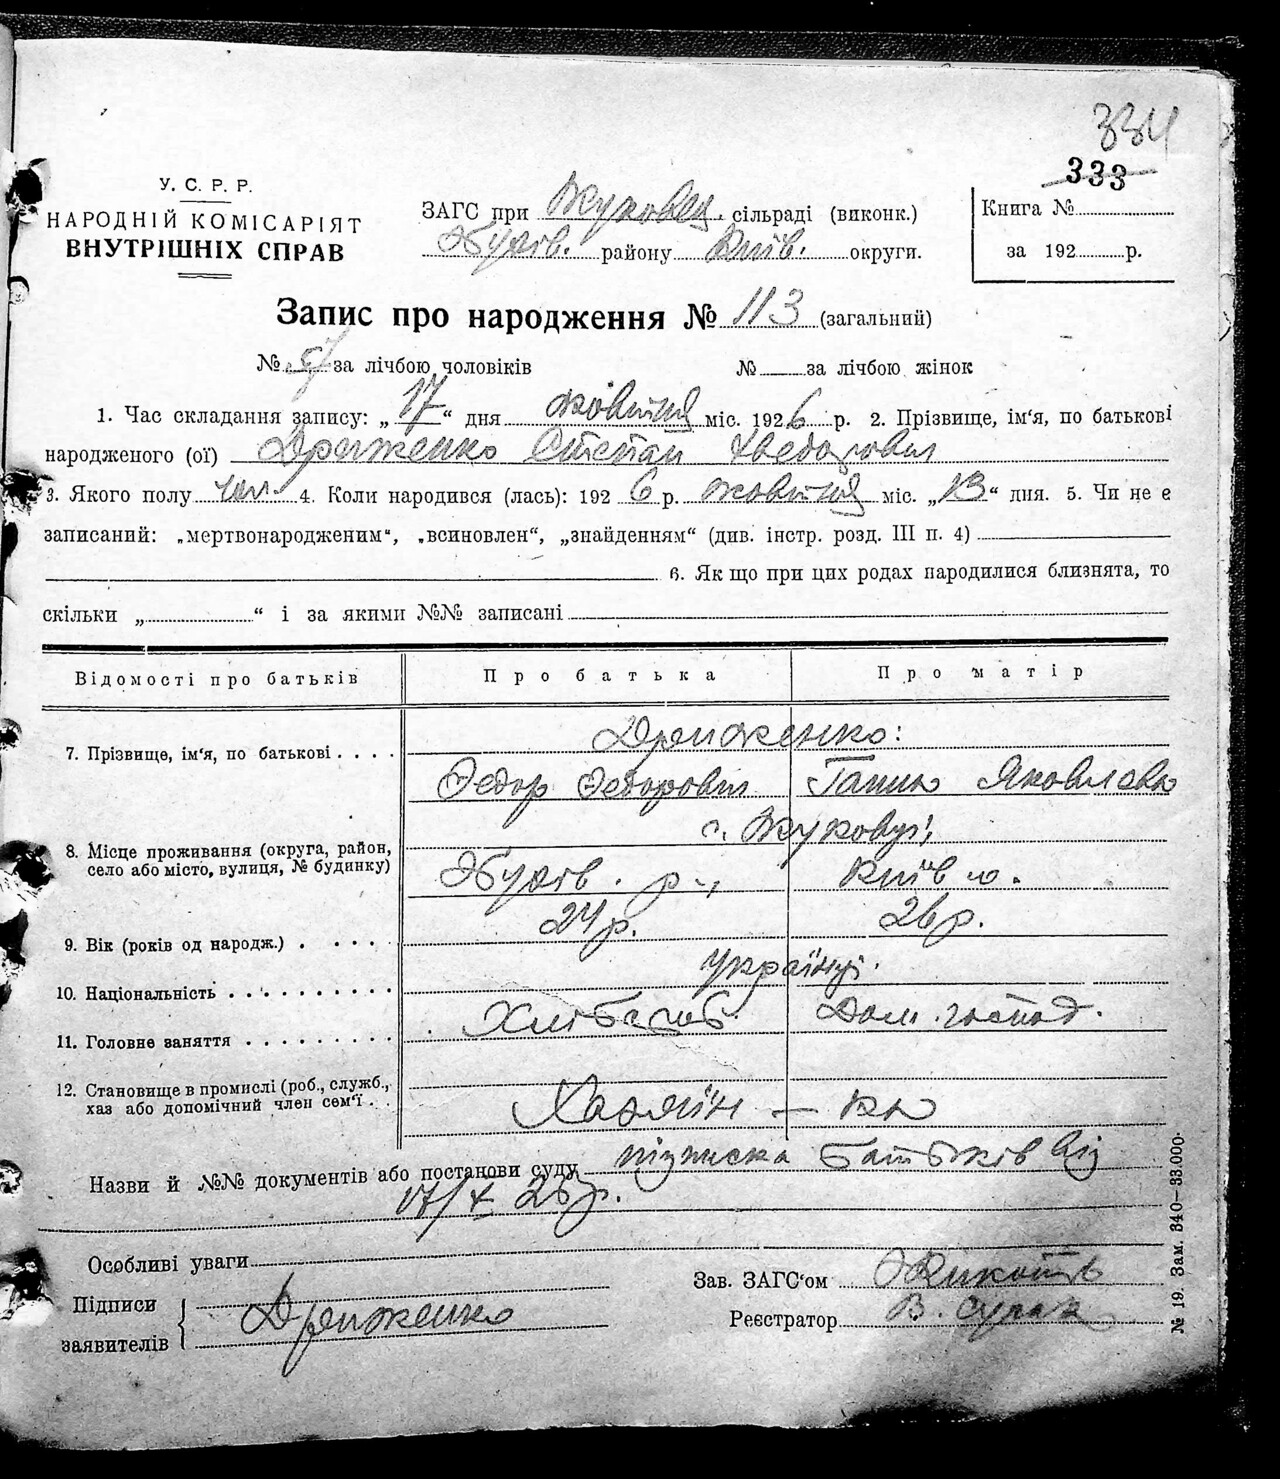 334
333
У. С. Р. Р.
НАРОДНІЙ КОМІСАРІЯТ
ВНУТРІШНІХ СПРАВ
ЗАГС при Жуковец. сільраді (виконк.)
Обухів. району Київ. округи.
Книга №
за 192 р.
Запис про народження № 113 (загальний)
№ 57 за лічбою чоловіків № за лічбою жінок
1. Час складання запису: „17“ дня жовтня міс. 1926 р. 2. Прізвище, ім'я, по батькові
народженого (ої) Дриженко Степан Хведорович
3. Якого полу чол. 4. Коли народився (лась): 1926 р. жовтня міс. „13“ дня. 5. Чи не є
записаний: „мертвонародженим“, „всиновлен“, „знайденням“ (див. інстр. розд. III п. 4)
6. Як що при цих родах народилися близнята, то
скільки „ “ і за якими №№ записані
Відомості про батьків Про батька Про матір
7. Прізвище, ім'я, по батькові . . . . Дриженко:
Федор Федорович Ганна Яковлевна
с. Жуковці,
8. Місце проживання (округа, район,
село або місто, вулиця, № будинку) Обухів. р-, Київ о.
9. Вік (років од народж.) . . . . . 24 р. 26 р.
10. Національність . . . . . . . . . . українці.
11. Головне заняття . . . . . . . . . Хлібороб Дом. господ.
12. Становище в промислі (роб., служб.,
хаз або допомічний член сем'ї . . Хазяїн — ка
Назви й №№ документів або постанови суду підписка батьків від
17/X 26 р.
Особливі уваги
Підписи
заявителів Дриженко
Зав. ЗАГС'ом
Реєстратор В.
№ 19. Зам. 340—33.000.